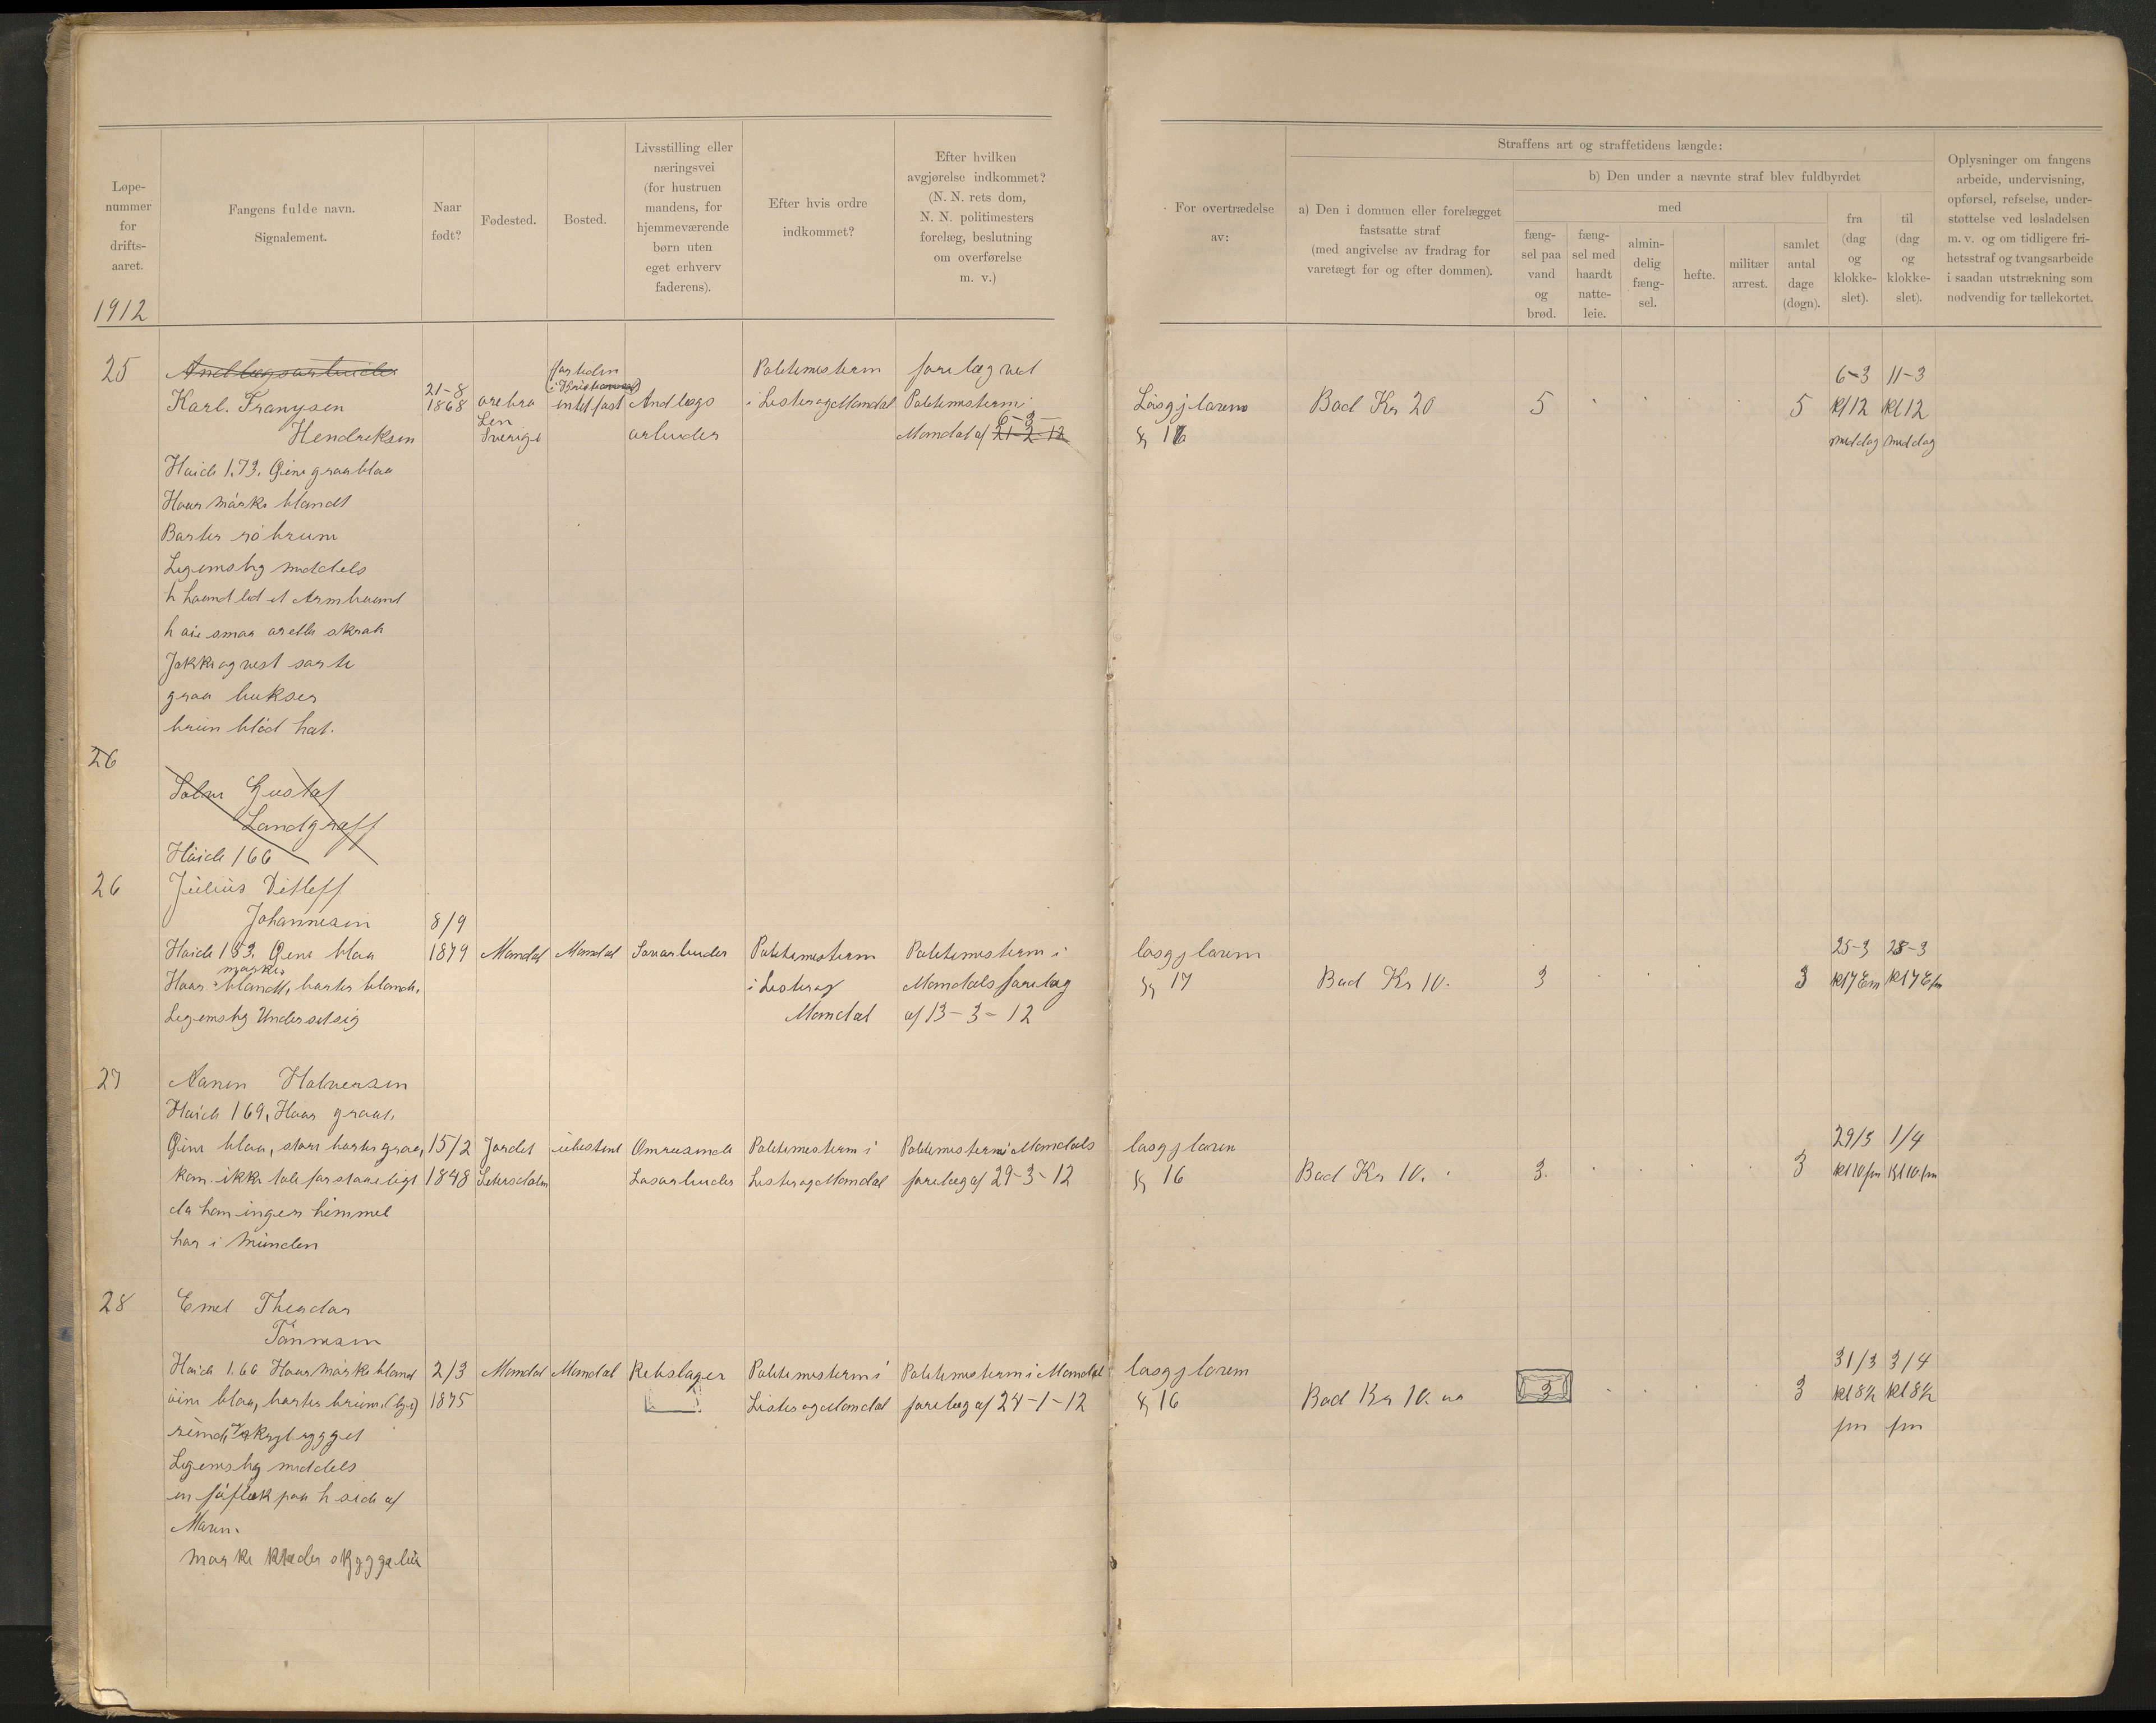 Løpe-
nummer
for
drifts-
aaret.
1912
Fangens fulde navn.
Signalement.
Naar
født?
Fødested.
Bosted.
Livsstilling eller
næringsvei
(for hustruen
mandens, for
hjemmeværende
børn uten
eget erhverv
faderens).
Efter hvis ordre
indkommet?
Efter hvilken
avgjørelse indkommet?
(N. N. rets dom,
N. N. politimesters
forelæg, beslutning
om overførelse
m. v.)
For overtrædelse
av:
Straffens art og straffetidens længde:
a) Den i dommen eller forelægget
fastsatte straf
(med angivelse av fradrag for
varetægt før og efter dommen).
b) Den under a nævnte straf blev fuldbyrdet
med
fæng-
sel paa
vand
og
brød.
fæng-
sel med
haardt
natte-
leie.
almin-
delig
fæng-
sel.
hefte.
militær
arrest.
samlet
antal
dage
(døgn).
fra
(dag
og
klokke-
slet).
til
(dag
og
klokke-
slet).
Oplysninger om fangens
arbeide, undervisning,
opførsel, refselse, under-
støttelse ved løsladelsen
m. v. og om tidligere fri-
hetsstraf og tvangsarbeide
i saadan utstrækning som
nødvendig for tællekortet.
25
Karl. Franysen
Hendriksen
21-8
1868
orebro
Len
Sverige
for tiden
intet fast
Andlegs
arbeider
Politimestern
i Lister og Mandal
forelæg ved
Politimestern i
6-3-
Mandal af 21-2-12
Løsgjloven
§ 16
Bod Kr 20
5
5
6-3 11-3
kl 12 kl 12
middag middag
Høide 1.73. Øine graablaa
Haar mørke blandt
Barter røbrun
Legemsbg middels
h haand led et Armbaand
h øie smaa
Jakke og vest sorte
graa bukser
brun blød hat.
26
Gustaf
Landgraff
Høide 166
26
Julius Ditleff
Johannesen
8/9
1879
Mandal
Mandal
Politimestern
i Lister og
Mandal
Politimestern i
Mandals forelæg
af 13-3-12
løsgjloven
§ 17
Bod Kr 10.
3
3
25-3 28-3
kl 7 Em kl 7 Efm
Høide 183. Øine blaa
mørke
Haar blandt, barter blonde,
Legemsbg Undersetsig
27
Nanen Halversen
Høide 169, Haar graat,
Øine blaa, store barter graa,
kan ikke tale forstaaeligt
da han ingen himmel
har i Munden
15/2
1848
Jordet
Setersdalen
ubestemt
Omreisende
Løsarbeider
Politimestern i
Lister og Mandal
Politimestern i Mandals
forelæg af 29-3-12
løsgjloven
§ 16
Bod Kr 10.
3.
3
29/3 1/4
kl 10 fm kl 10 fm
28
Emil Theodor
Tønnesen
Høide 1.66 Haar mørke blond
øine blaa, barter brune (lys)
Legemsbg middels
en føflæk paa h side af
Maven.
mørke klæder skyggelue
2/3
1875
Mandal
Mandal
Rebslager
Politimestern i
Lister og Mandal
Politimestern i Mandal
forelæg af 24-1-12
løsgjloven
§ 16
Bod Kr 10.
3
3
31/3 3/4
kl 8½ kl 8½
fm fm